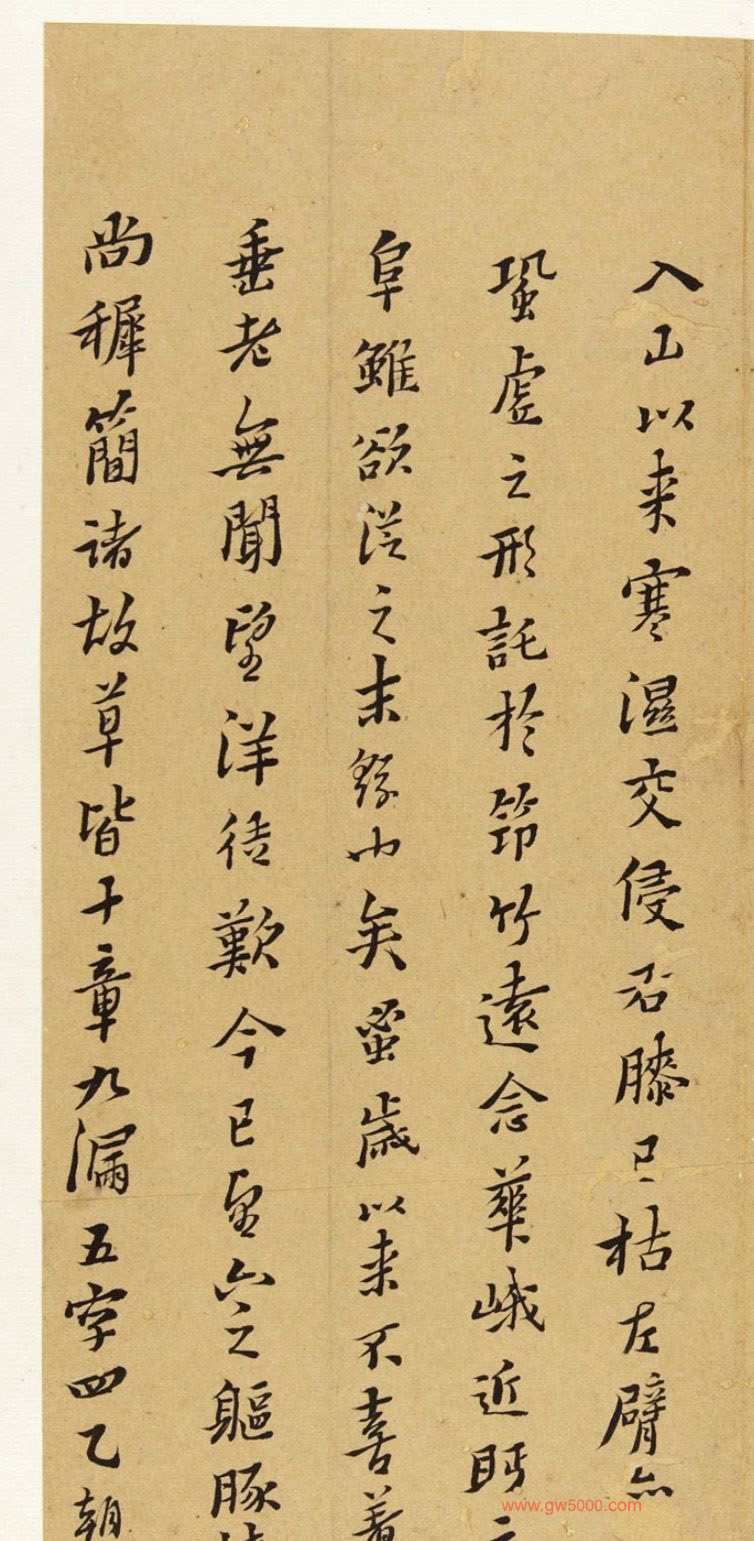 入山以来寒濕交侵右膝已枯左臂亦
蛩虛之形託於筇竹遠念華峨近眄
阜雖欲從之末繇也矣蚤歲以来不喜著
垂老無聞望洋徒歎今已望六之軀豚
尚穉簡諸故草皆十章九漏五字四乙朝
www.gw5000.com